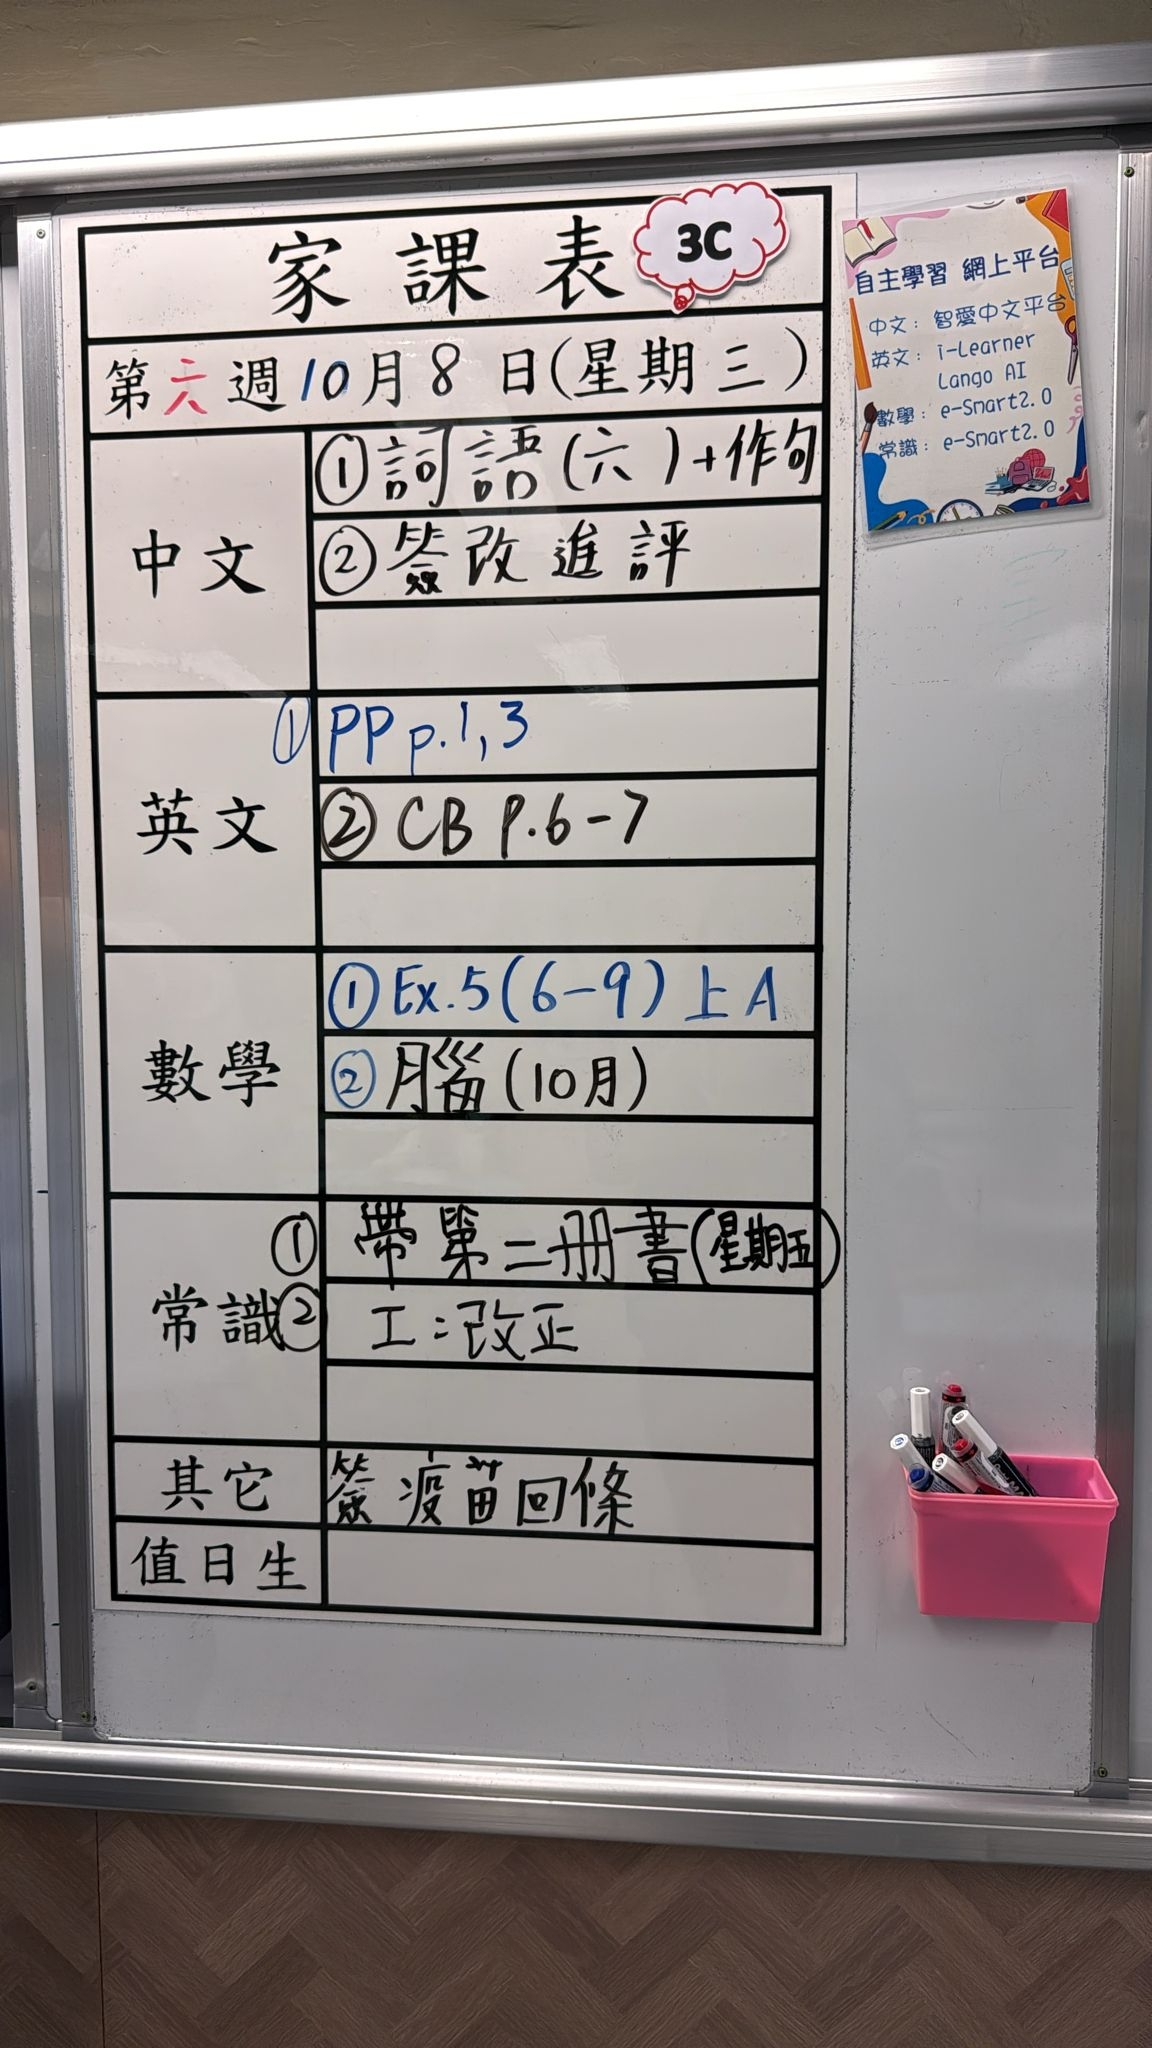 家課表 3C
第六週10月8日(星期三)
中文
①詞語(六)+作句
②簽改進評
英文
①PP p.1,3
②CB P.6-7
數學
①Ex.5(6-9)上A
②腦(10月)
常識
①帶第二冊書(星期五)
②工:改正
其它
簽疫苗回條
值日生
自主學習 網上平台
中文: 智愛中文平台
英文: i-Learner
Lango AI
數學: e-Smart2.0
常識: e-Smart2.0